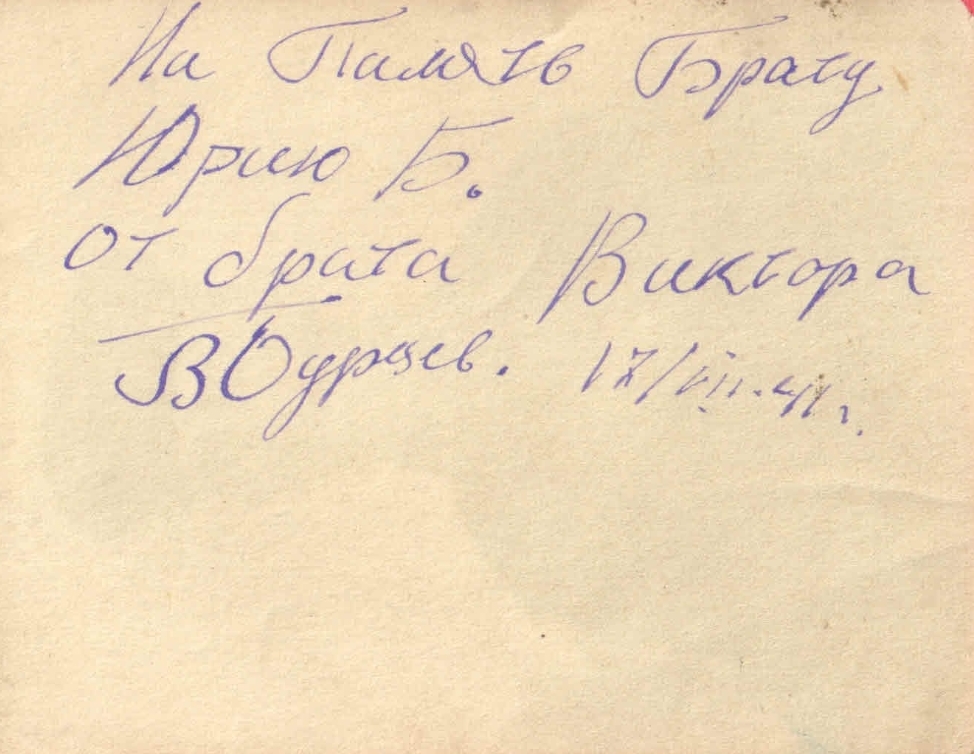 На Память Брату
Юрию Б.
от брата Виктора
ВБурцев. 17/VIII-41г.